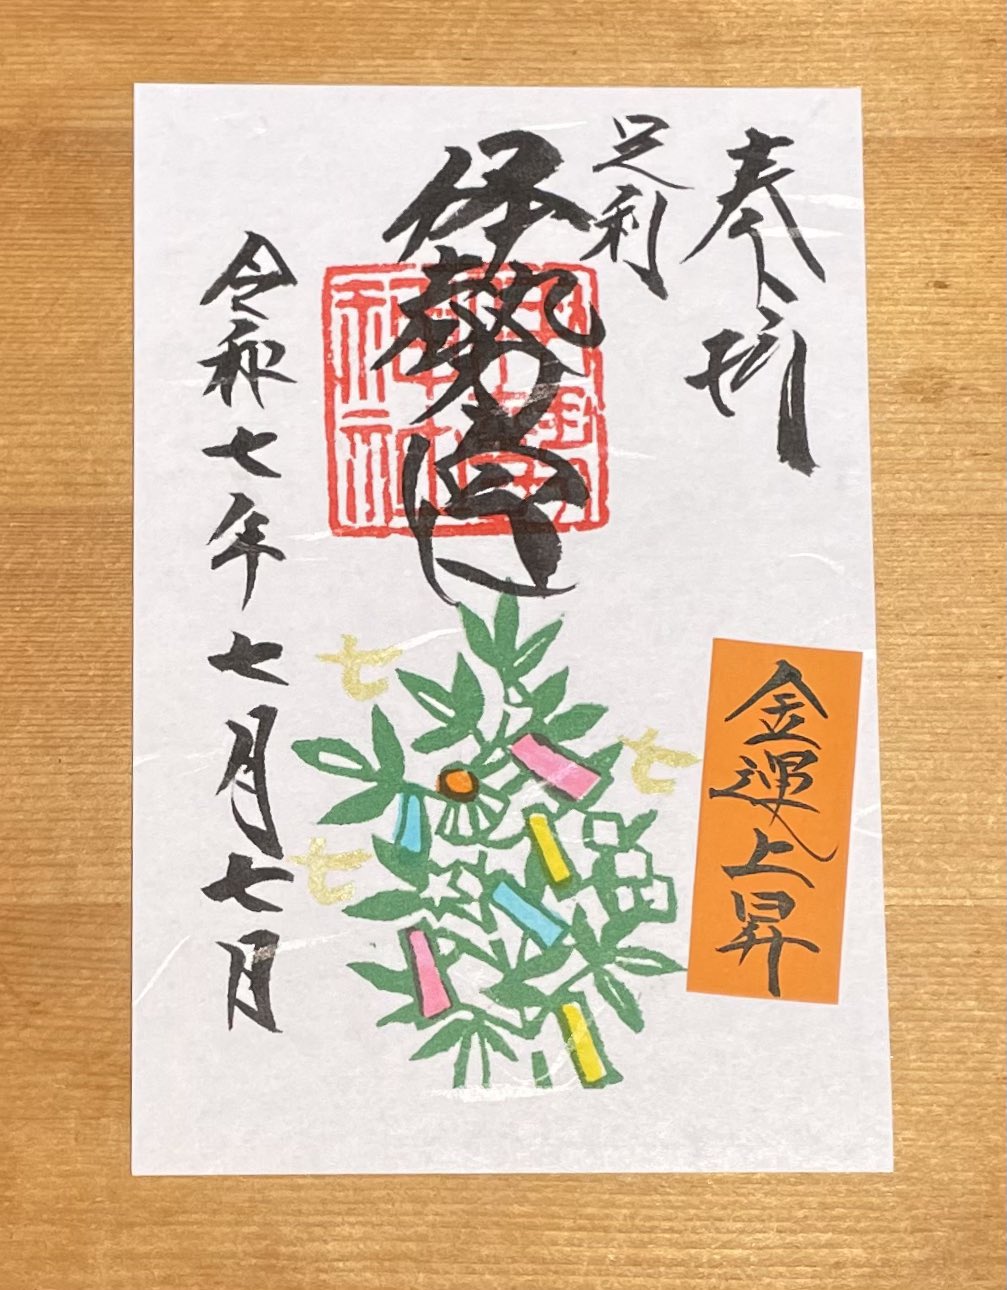 奉拝
足利
伊勢宮
令和七年七月七日
七
七
七
金運上昇